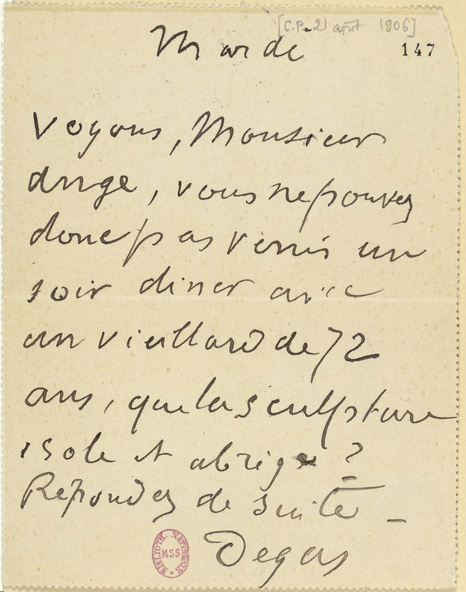 [C.P. 21 août 1906]
Mardi
147
Voyons, Monsieur
, vous ne pouvez
donc pas venir un
soir diner avec
un vieillard de 72
ans, que la sculpture
isole et abrige ?
Repondez de suite _
Degas
BIBLIOTH. NATIONALE
MSS